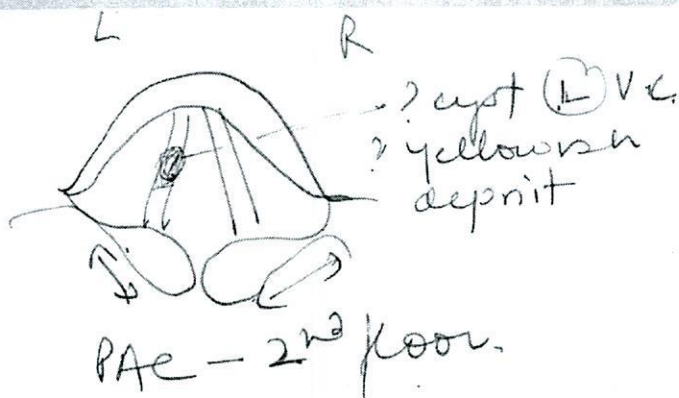 L R
? cyst (L) V.C.
? yellowish
deposit
PAC - 2nd floor.